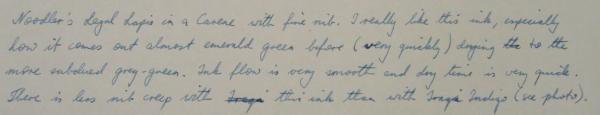 Noodler's Legal Lapis in a Carene with fine nib. I really like this ink, especially
how it comes out almost emerald green before (very quickly) drying the to the
more subdued grey-green. Ink flow is very smooth and dry time is very quick.
There is less nib creep with Iraqi this ink than with Iraqi Indigo (see photo).